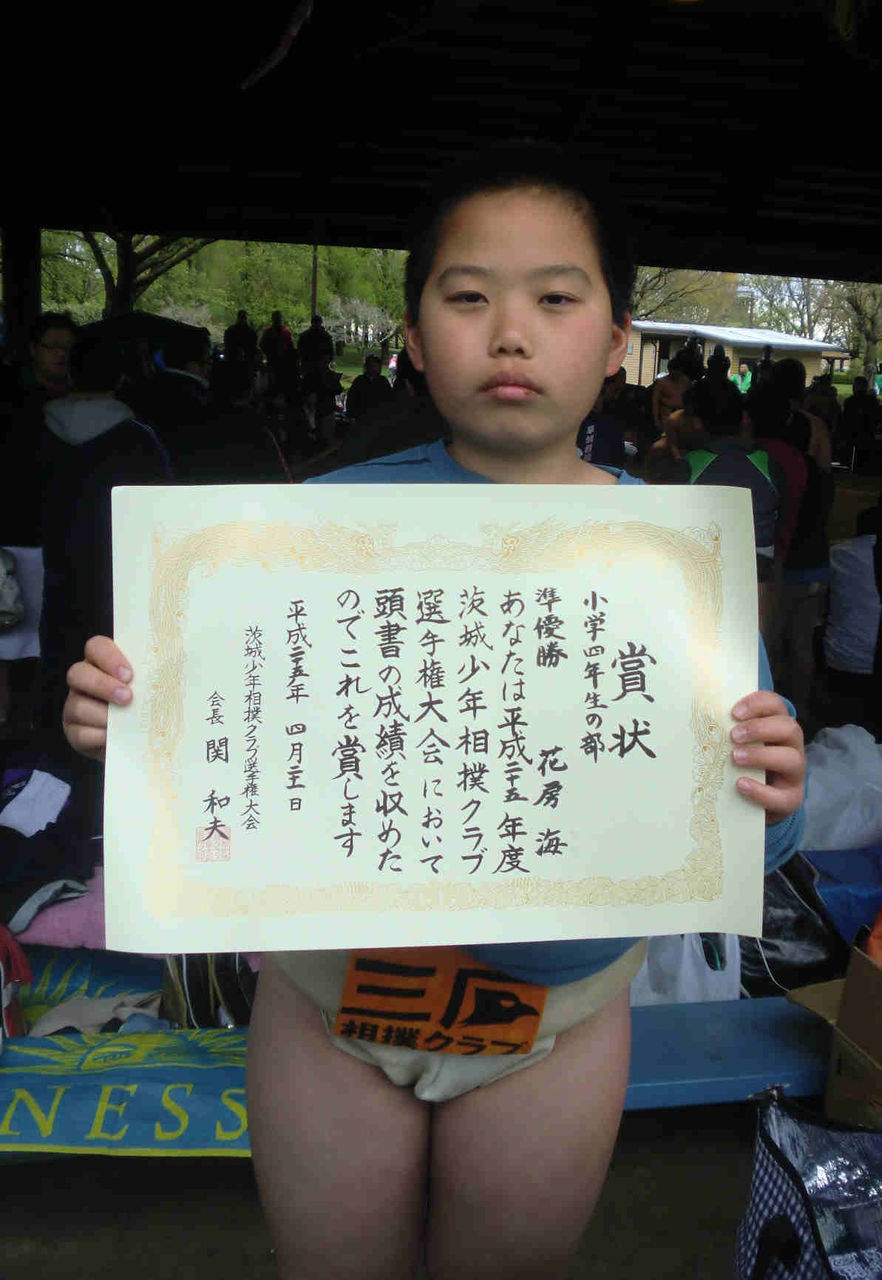 賞状
小学四年生の部
準優勝 花房 海
あなたは平成二十五年度
茨城少年相撲クラブ
選手権大会において
頭書の成績を収めた
のでこれを賞します
平成二十五年 四月二十一日
茨城少年相撲クラブ選手権大会
会長 関 和夫
相撲クラブ
NESS